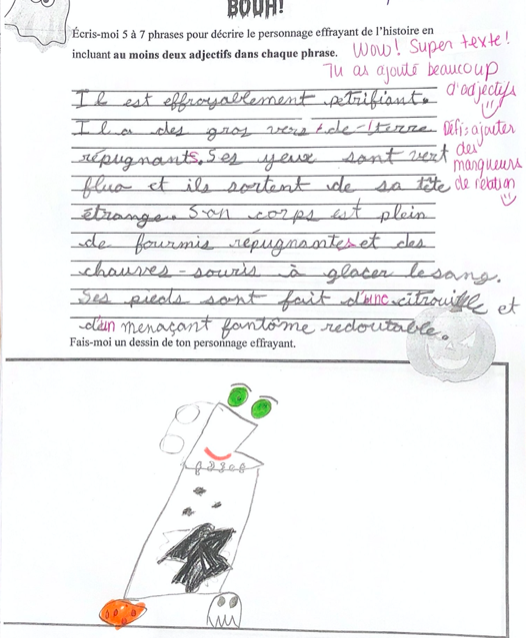 BOUH!
Écris-moi 5 à 7 phrases pour décrire le personnage effrayant de l'histoire en
incluant au moins deux adjectifs dans chaque phrase. Wow! Super texte!
Tu as ajouté beaucoup
d'adjectifs
Il est effroyablement pétrifiant.
Il a des gros vers de-terre Défi: ajouter
répugnants. Ses yeux sont vert des
marqueurs
fluo et ils sortent de sa tête de relation
étrange. Son corps est plein
de fourmis répugnantes et des
chauves-souris à glacer le sang.
Ses pieds sont fait d'une citrouille et
d'un menaçant fantôme redoutable.
Fais-moi un dessin de ton personnage effrayant.